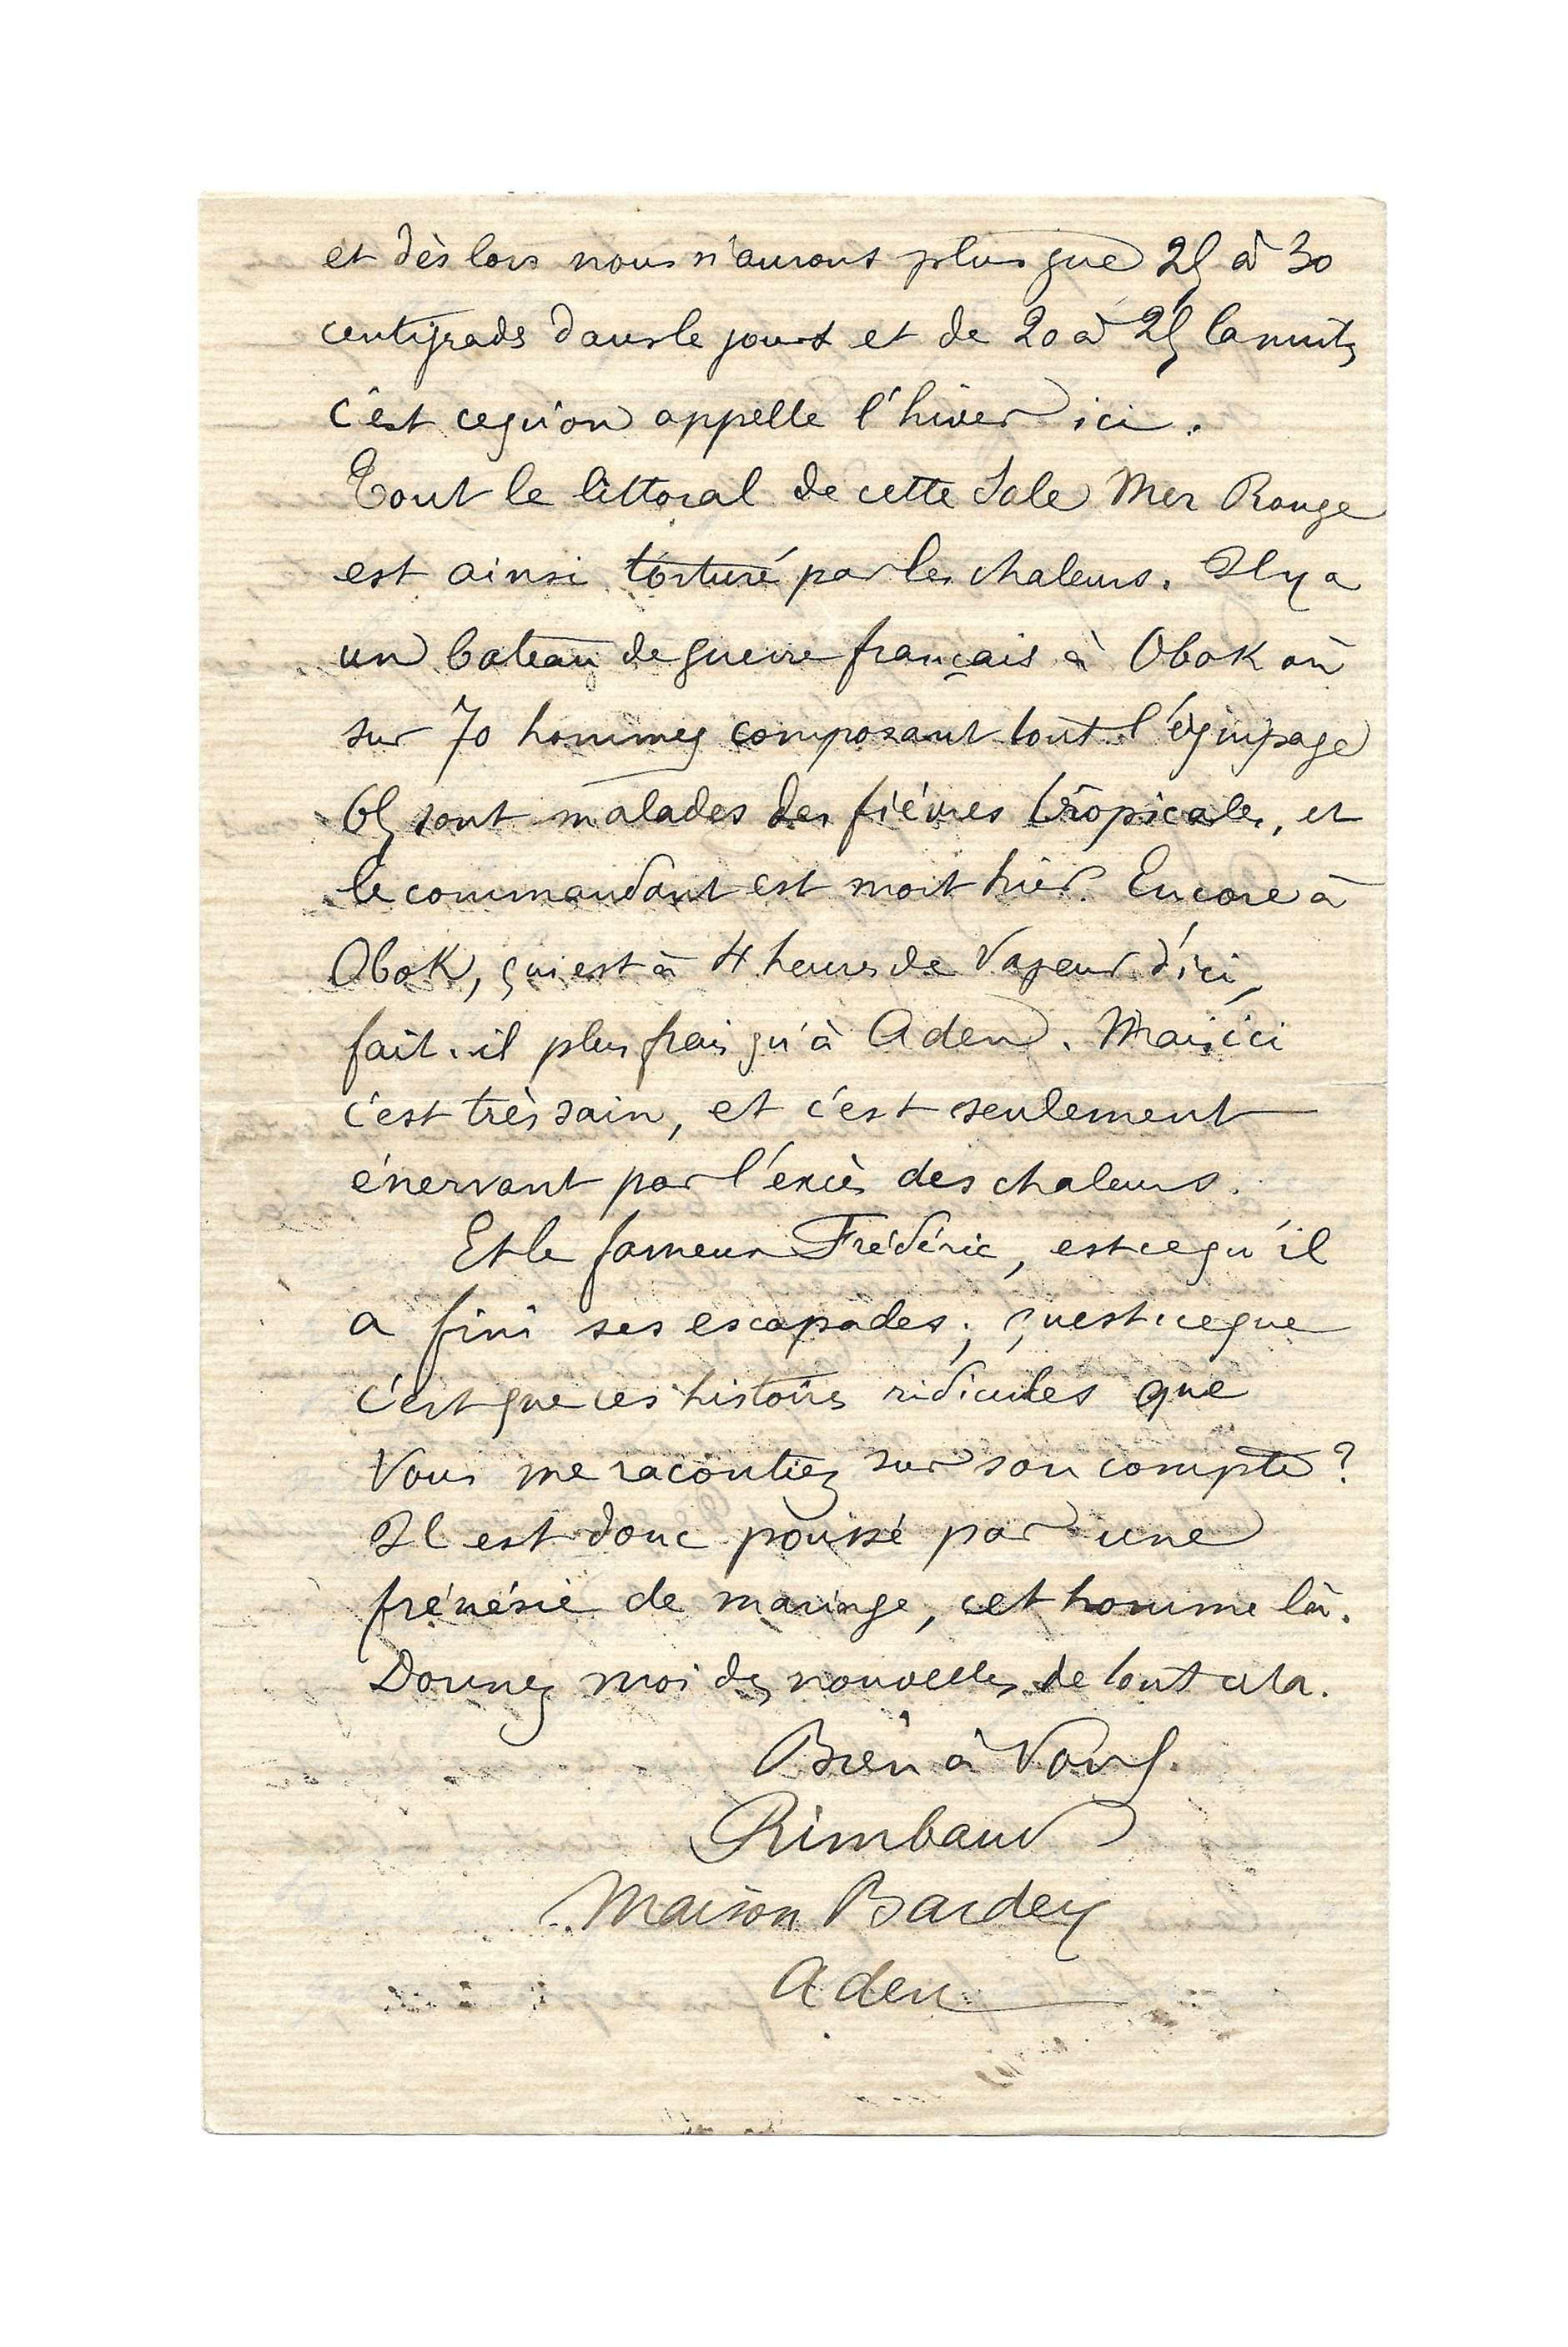 et dès lors nous n'aurons plus que 25 à 30
centigrads dans le jours et de 20 à 25 la nuit,
c'est ce qu'on appelle l'hiver ici.
Tout le littoral de cette Sale Mer Rouge
est ainsi torturé par les chaleurs. Il y a
un bateau de guerre français à Obok où
sur 70 hommes composant tout l'équipage
65 sont malades des fièvres tropicales, et
le commandant est mort hier. Encore à
Obok, qui est à 4 heures de Vapeur d'ici,
fait-il plus frais qu'à Aden. Mais ici
c'est très sain, et c'est seulement
énervant par l'excès des chaleurs.
Et le fameux Frédéric, est ce qu'il
a fini ses escapades; qu'est ce que
c'est que ces histoires ridicules que
Vous me racontiez sur son compte?
Il est donc poussé par une
frénésie de mariage, cet homme là.
Donnez moi des nouvelles de tout cela.
Bien à Vous.
Rimbaud
Maison Bardey
Aden